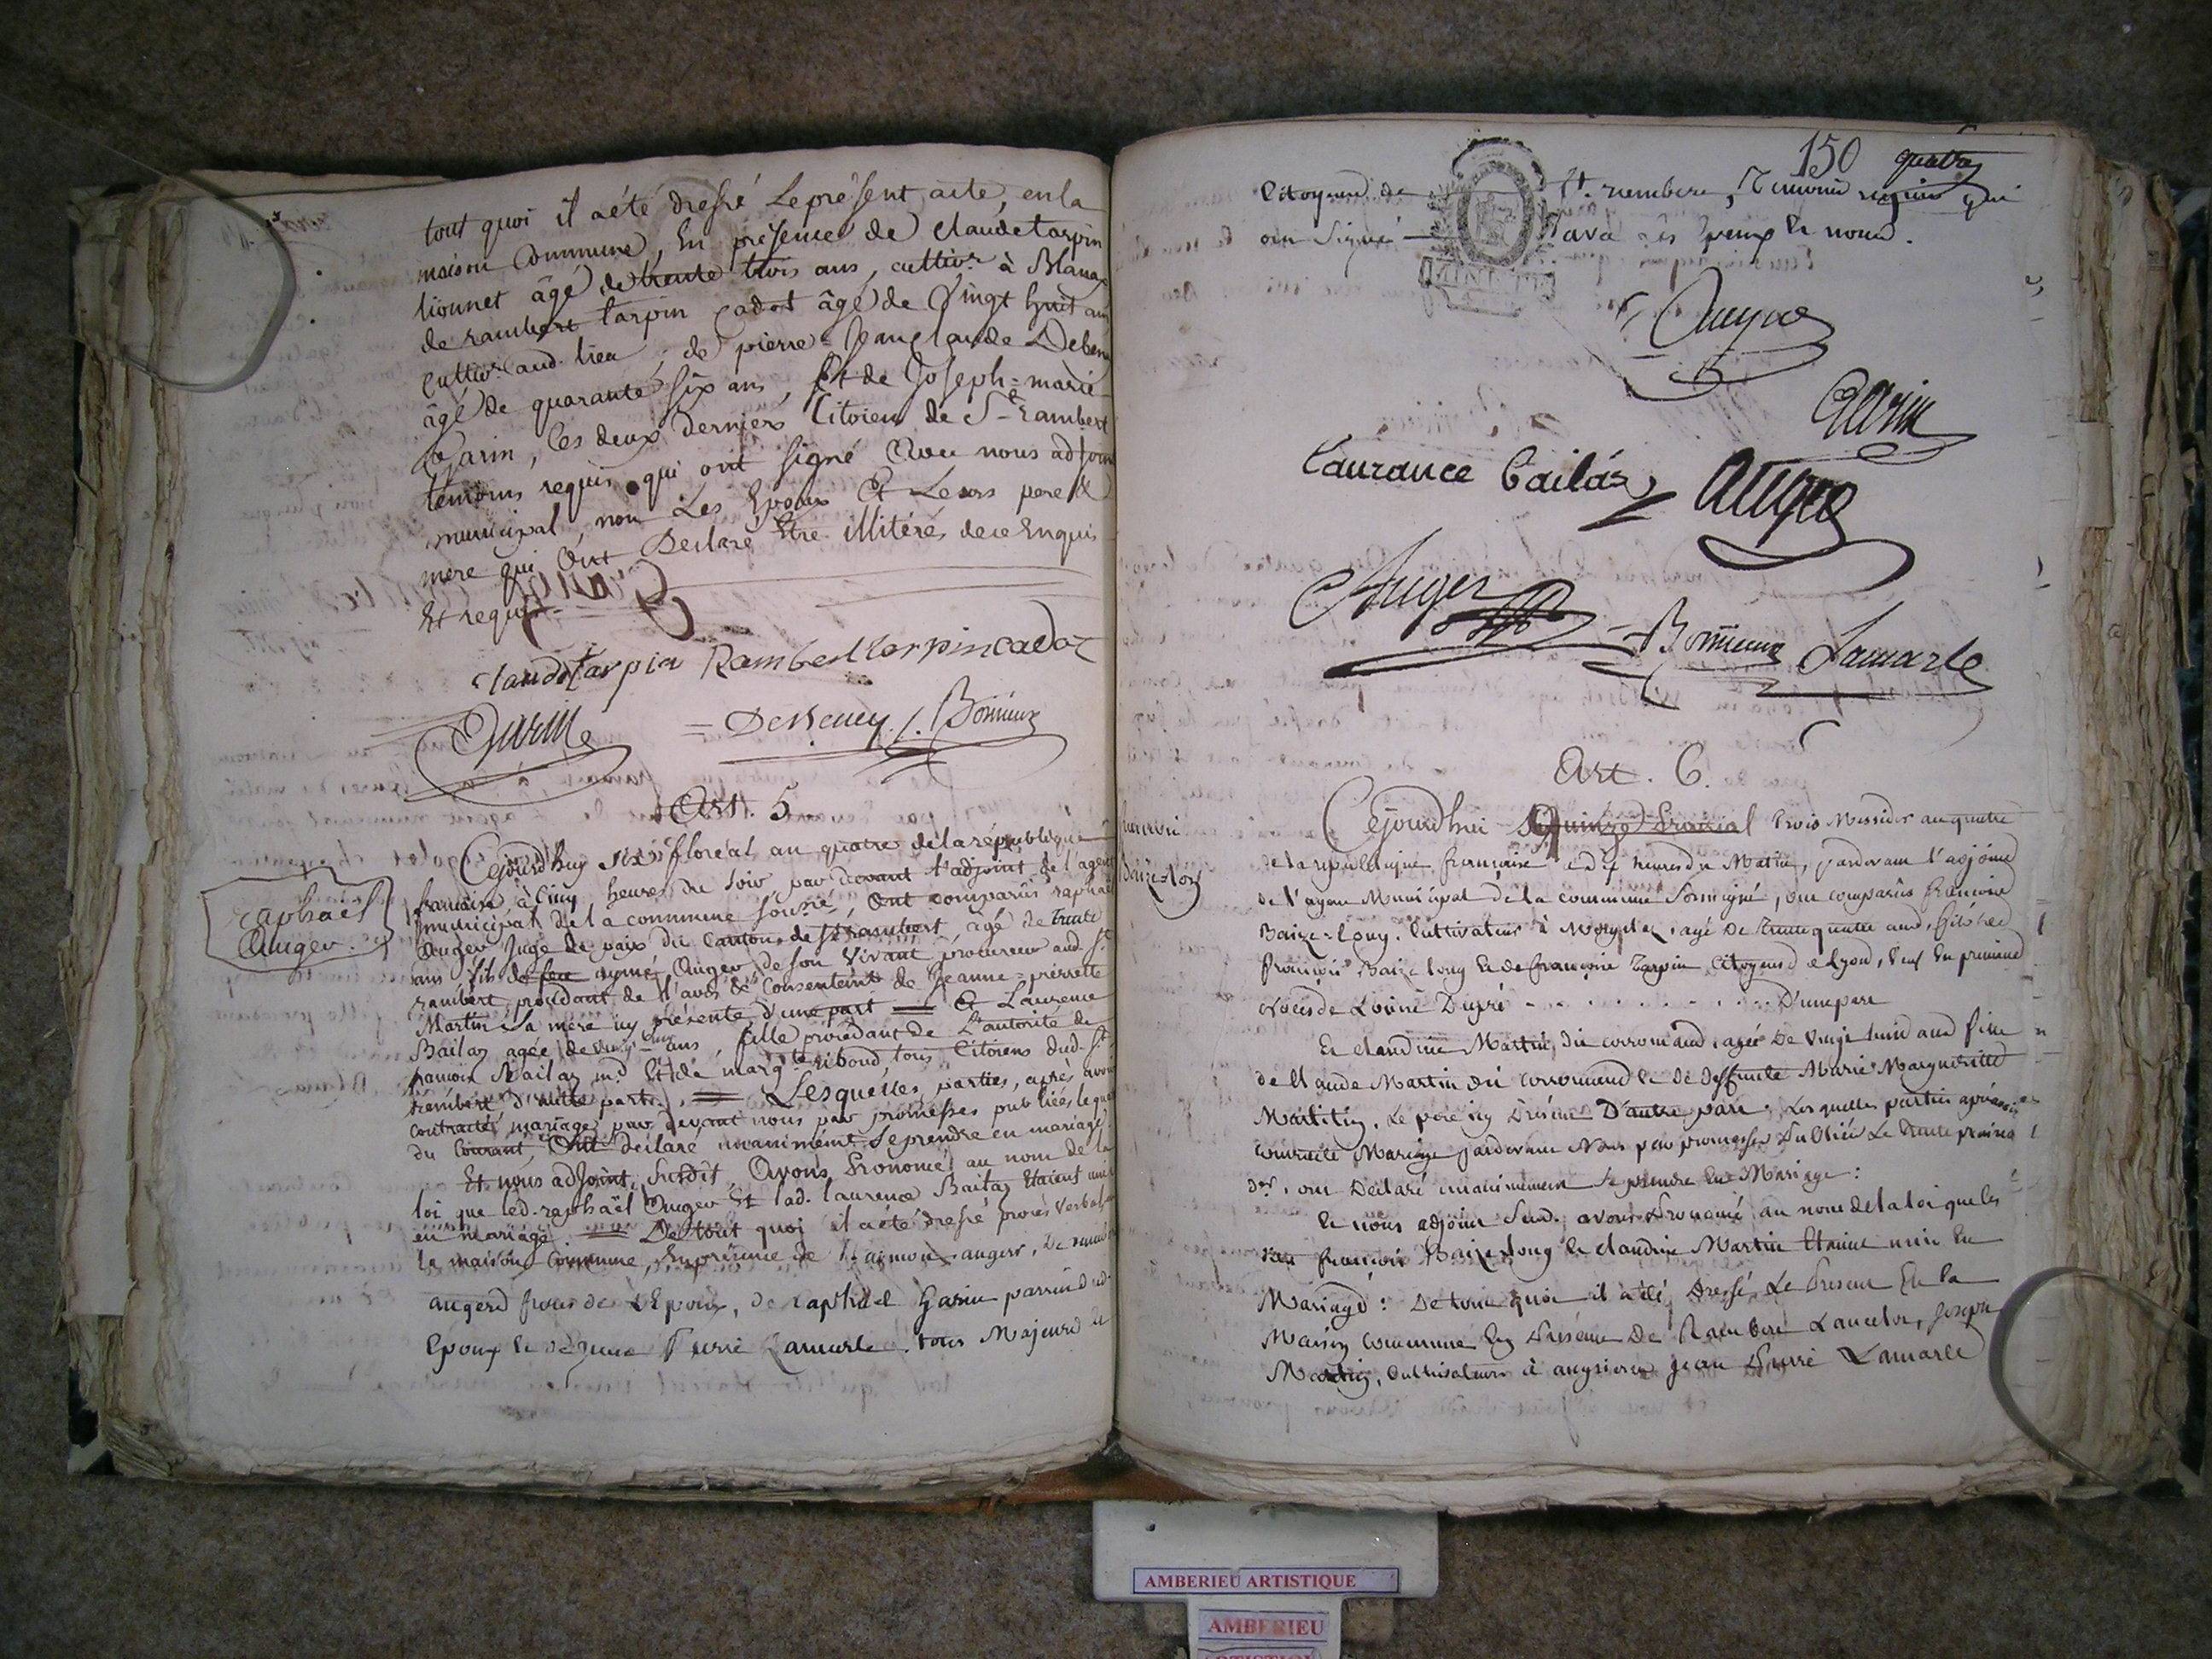 tout quoi il a été dressé le présent acte, en la
maison Commune, En présence de Claude tarpin
lionnet âgé de trente trois ans, cultivr à Blana
de rambert tarpin Cadot âgé de Vingt huit ans
cultivr aud. lieu, de pierre=Jean Claude Debeney
âgé de quarante six ans, Et de Joseph=marie
Garin, Ces deux derniers Citoiens de St Rambert
témoins requis qui ont signé Avec nous adjoint
municipal, non Les Epoux Et Leurs pere Et
mere qui Ont Déclaré Etre illitérés de ce Enquis
Et requis.
Claude tarpin Rambert tarpin cadot
Garin Debeney Bonnieux
Art. 5
Cejourd'huy six floréal an quatre de la république
francaise, à Cinq heures du soir, par devant l'adjoint de l'agent
municipal de la commune soussigné, Ont comparus raphaël
raphaël
Auger.
Auger Juge de paix du Canton de St rambert, agé de trente
ans fils de feu aymé Auger de son Vivant procureur aud. St
rambert, procédant de l'avis & Consentemt de Jeanne=pierrette
Martin Sa mere icy présente d'une part Et Laurence
Bailaz agée de vingt ans, fille procédant de L'autorité de
francois Bailaz md. Et de margte Riboud, tous Citoiens dud. St
rembert D'autre part. Lesquelles parties, après avoir
contracté mariage par devant nous par promesses publiées le
du Courant, Ont Déclaré unanimément Se prendre en mariage.
Et nous adjoint, Susdit, Avons Prononcé au nom de la
loi que led. raphaël Auger Et lad. laurence Bailaz étaient unis
en mariage. De tout quoi il a été dressé procès verbal
la maison Commune, En présence de augers, De
augerd frères de l'Epoux, de raphael Garin parrain dud.
Epoux et de Jean Pierre Lamarle tous Majeurs et
150
Citoyens de St. rembert, Témoins requis qui
on signé avec les Epoux Et nous.
Auger
Garin
Laurance Bailaz Auger
Auger
Bonnieux Lamarle
Art. 6.
Cejourd'hui Quinze Prairial trois Messidor an quatre
de la republique francaise a dix heures du Matin, pardevant l'adjoint
de l'agent Municipal de la commune Soussigné, ont comparus francois
Baize=long
Baize=long. Cultivateur à agé De trente quatre ans, fils de
francois Baize long Et de francoise Tarpin Citoyens de Lyon, Veuf En premieres
nôces de Louise Dupré D'une part
Et claudine Martin, dit corromand, agée De Vingt huit ans fille
de Claude Martin dit corromand Et De deffunte Marie Marguerite
Martin, Le pere icy Present D'autre part. Les quelles parties après avoir
contracté Mariage pardevant Nous par promesses Publiées Le trente prairial
der, ont Déclaré unanimement Se prendre En Mariage:
Et nous adjoint Susd. avons Prononcé au nom de la loi que les
francois Baize=long Et claudine Martin Etaient unis En
Mariage: De tout quoi il a été Dressé Le Present En la
Maison Commune En Présence De Rambert Lancelot, Joseph
Martin, Cultivateurs à angrieres Jean Pierre Lamarle
AMBERIEU ARTISTIQUE
AMBERIEU